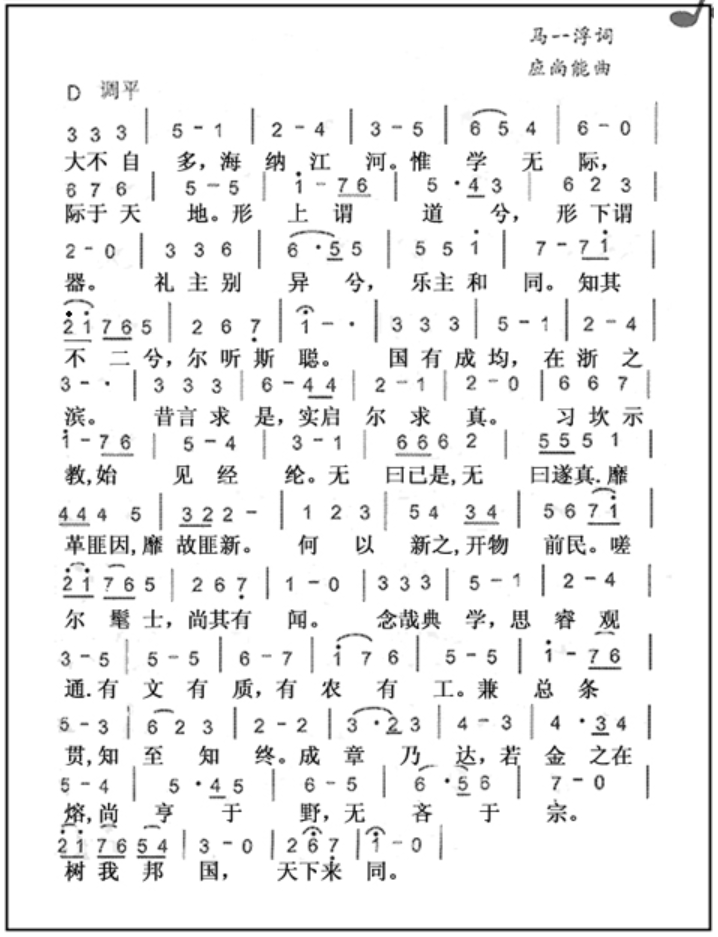 马一浮词
应尚能曲
D 调平
3 3 3 | 5 - 1 | 2 - 4 | 3 - 5 | 6 5 4 | 6 - 0 |
大不自 多，海 纳 江 河。惟 学 无 际，
6 7 6 | 5 - 5 | i - 7 6 | 5 · 4 3 | 6 2 3 |
际于天 地。形 上 谓 道 兮， 形下谓
2 - 0 | 3 3 6 | 6 · 5 5 | 5 5 i | 7 - 7 i |
器。 礼 主 别 异 兮， 乐主 和 同。知其
2 i 7 6 5 | 2 6 7 | i - · | 3 3 3 | 5 - 1 | 2 - 4 |
不 二兮，尔 听 斯 聪。 国 有 成 均，在 浙 之
3 - · | 3 3 3 | 6 - 4 4 | 2 - 1 | 2 - 0 | 6 6 7 |
滨。 昔言 求 是，实启 尔 求 真。 习 坎 示
i - 7 6 | 5 - 4 | 3 - 1 | 6 6 6 6 2 | 5 5 5 5 1 |
教,始 见 经 纶。无 曰己是,无 曰遂真.靡
4 4 4 5 | 3 2 2 - | 1 2 3 | 5 4 3 4 | 5 6 7 i |
革匪因,靡 故匪新。 何 以 新之,开物 前民。嗟
2 i 7 6 5 | 2 6 7 | 1 - 0 | 3 3 3 | 5 - 1 | 2 - 4 |
尔 髦 士，尚其有 闻。 念哉典 学，思 睿 观
3 - 5 | 5 - 5 | 6 - 7 | i 7 6 | 5 - 5 | i - 7 6 |
通.有 文 有 质，有 农 有 工。兼 总 条
5 - 3 | 6 2 3 | 2 - 2 | 3 · 2 3 | 4 - 3 | 4 · 3 4 |
贯,知 至 知 终。成 章 乃 达，若 金 之在
5 - 4 | 5 · 4 5 | 6 - 5 | 6 · 5 6 | 7 - 0 |
熔,尚 亨 于 野,无 吝 于 宗。
2 i 7 6 5 4 | 3 - 0 | 2 6 7 | i - 0 |
树 我 邦 国， 天下来 同。